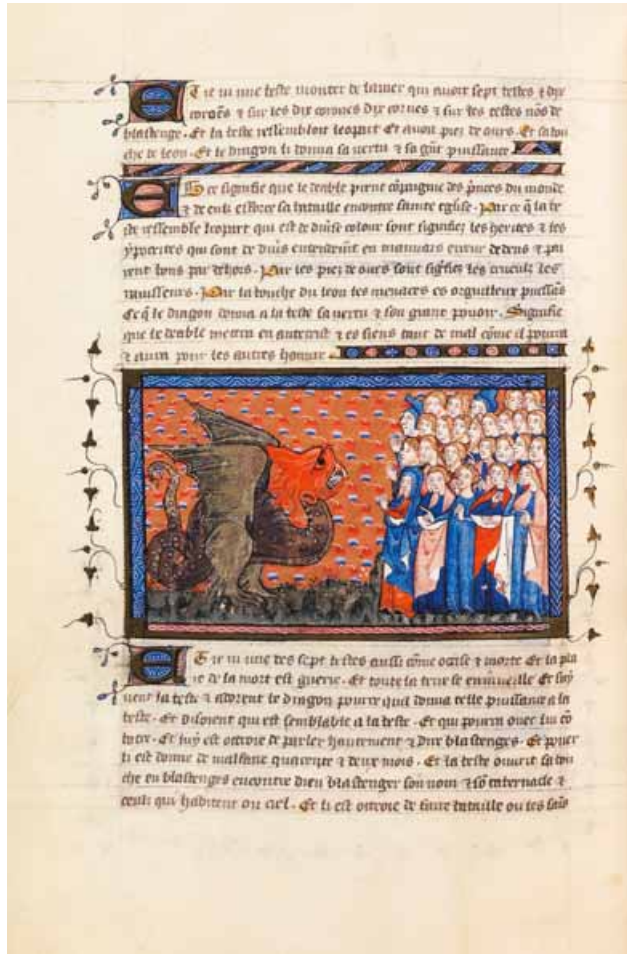 Et ie vi une beste monter de la mer qui avoit sept testes & dix
cornes & sur les dix cornes dix corones & sur ses testes nõs de
blastenge. Et la beste resembloit leopart Et avoit piez de ours. Et sa bou
che de leon. Et le dragon li donna sa vertu & sa grãt puissance
Ce signifie que le deable prent cõpaignie des princes du monde
& de eulz efforce sa bataille encontre sainte eglise. Par ce q̃ la be
ste resemble leopart qui est de divse colour sont signifiez les herites & les
ypocrites qui sont de divs entendemẽt en mauvais erreur dedens & pai
rent bons par dehors. Par les piez de ours sont sigfiez les cruelz les
ravisseurs. Par la bouche du leon les menaces es orguilleux
Ce q̃ le dragon donna a la beste sa vertu & son grant povoir. Signifie
que le deable metra en antecrist & es siens tant de mal cõme il pourra
& aura pour les autres
Et ie vi une des sept testes aussi cõme occise & morte Et la pla
ie de la mort est guerie. Et toute la terre se emerveille Et suy
vent la beste & aorent le dragon pource quil donna telle puissance a la
beste. Et disoient qui est semblable a la beste. Et qui pourra avec lui cõ
batre. Et luy est ottroie de parler hautement & dire blastenges. Et pover
li est donne de malfaire quarente & deux mois. Et la beste ouvrit sa bou
che en blastenges encontre dieu blastenger son nom & sõ tabernacle &
ceulz qui habitent ou ciel. Et li est ottroie de faire bataille ou les sais